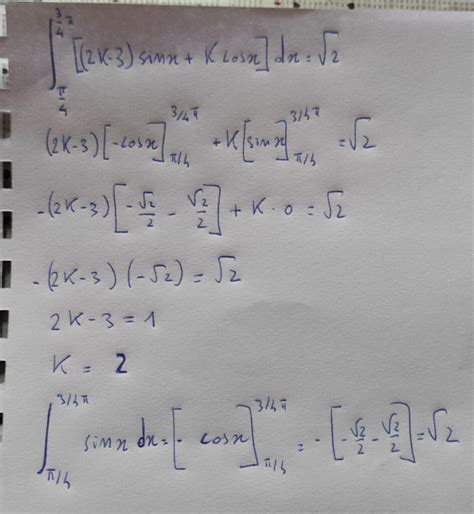 ∫_{π/4}^{3/4 π} [(2K-3) sinx + K cosx] dx = √2
(2K-3) [-cosx]_{π/4}^{3/4 π} + K [sinx]_{π/4}^{3/4 π} = √2
-(2K-3) [-√2/2 - √2/2] + K · 0 = √2
-(2K-3) (-√2) = √2
2K-3 = 1
K = 2
∫_{π/4}^{3/4 π} sinx dx = [- cosx]_{π/4}^{3/4 π} = - [-√2/2 - √2/2] = √2